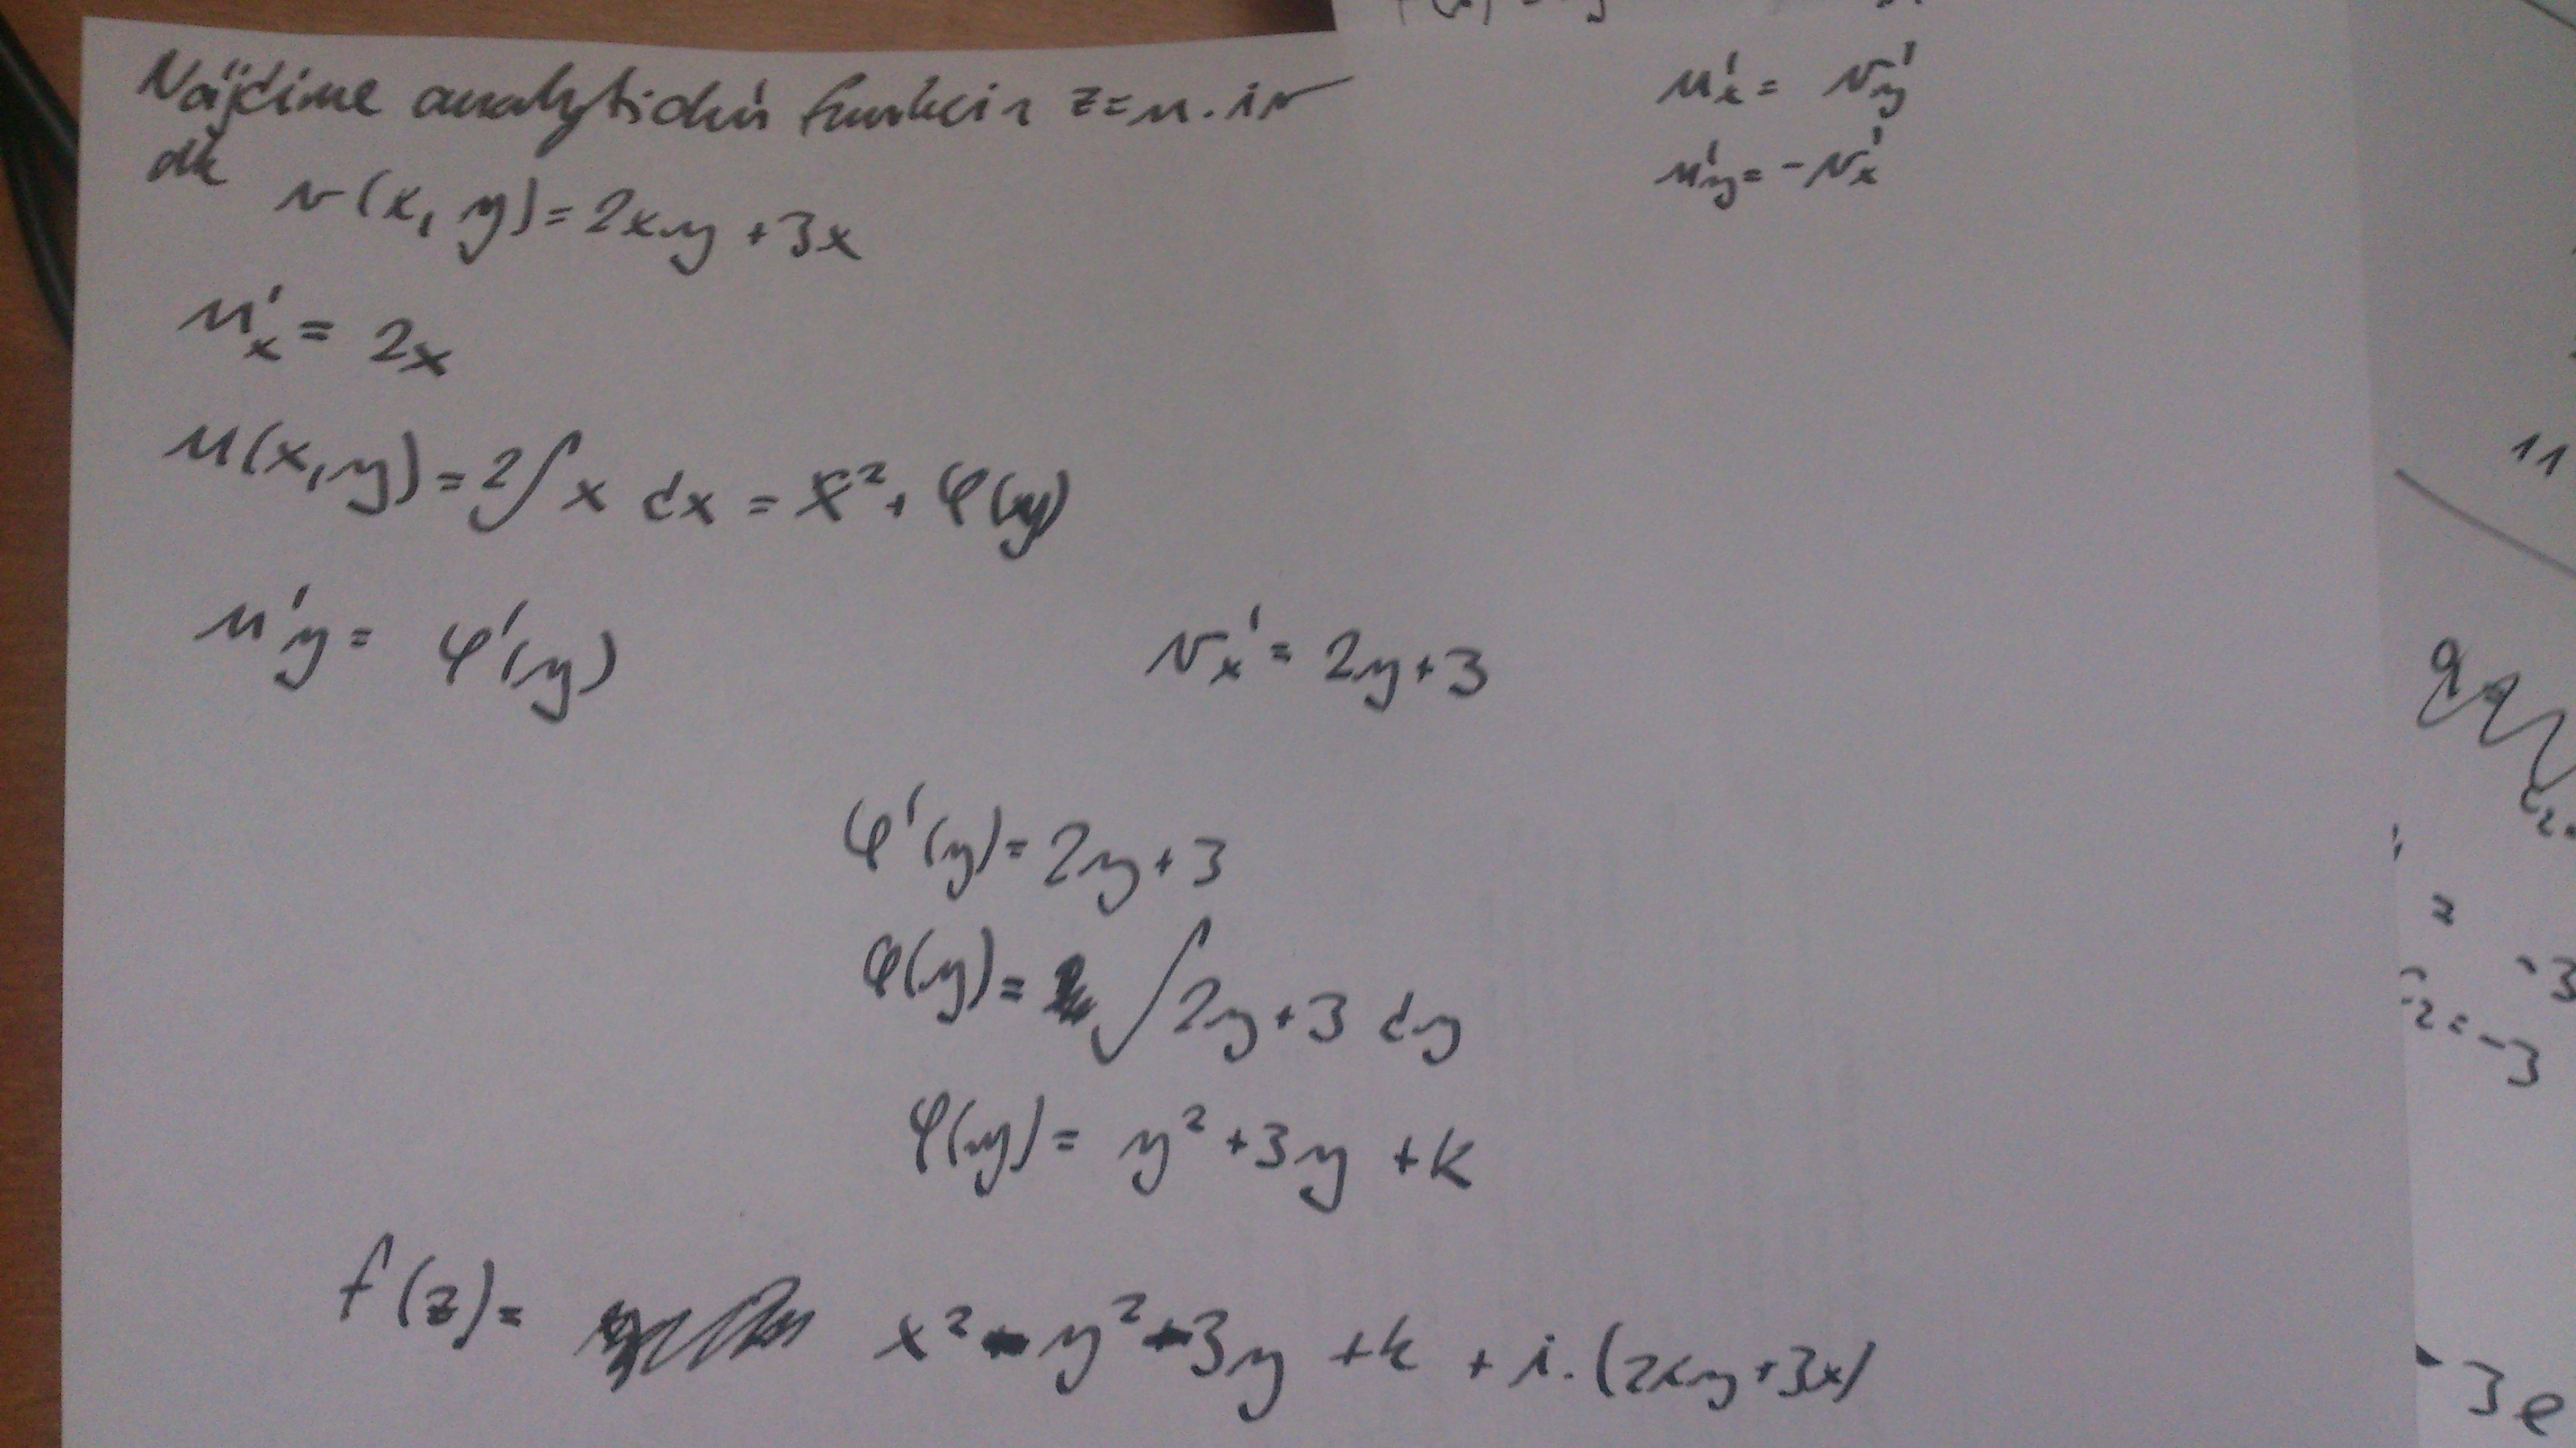 Nájdime analytickú funkciu z=u.iv
ak v(x,y)=2xy+3x
u'x = v'y
u'y = -v'x
u'x = 2x
u(x,y)=2∫x dx = x²+φ(y)
u'y = φ'(y)
v'x = 2y+3
φ'(y)=2y+3
φ(y)= ∫2y+3 dy
φ(y)= y²+3y +k
f(z)= x²-y²-3y +k + i.(2xy+3x)
11
-3
=-3
3e